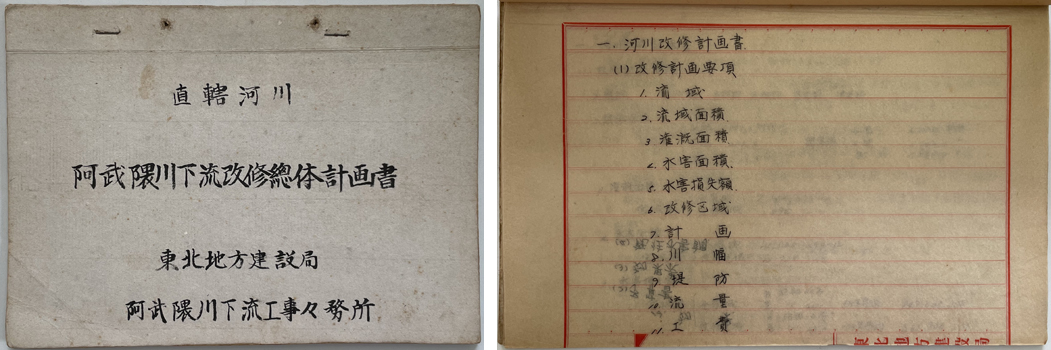 直轄河川
阿武隈川下流改修總体計画書
東北地方建設局
阿武隈川下流工事々務所
一.河川改修計画書
(1)改修計画要項
1.流域
2.流域面積
3灌漑面積
4.水害面積
5.水害損失額
6.改修区域
7.計画
8.川幅
9堤防
10流量
11工費
東北地方建設局